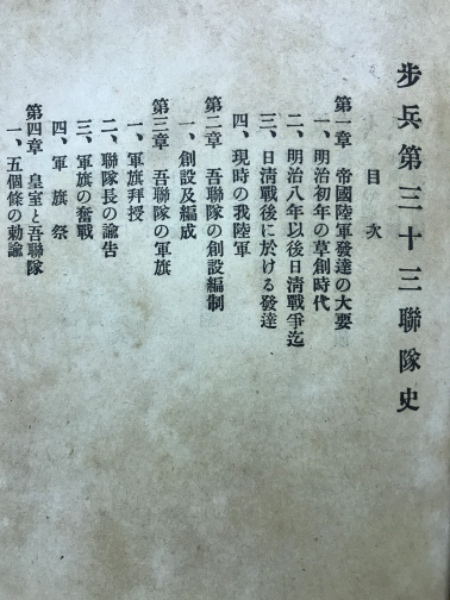 步兵第三十三聯隊史
目次
第一章 帝國陸軍發達の大要
一、明治初年の草創時代
二、明治八年以後日淸戰爭迄
三、日淸戰後に於ける發達
四、現時の我陸軍
第二章 吾聯隊の創設編制
一、創設及編成
第三章 吾聯隊の軍旗
一、軍旗拜授
二、聯隊長の諭告
三、軍旗の奮戰
四、軍旗祭
第四章 皇室と吾聯隊
一、五個條の勅諭